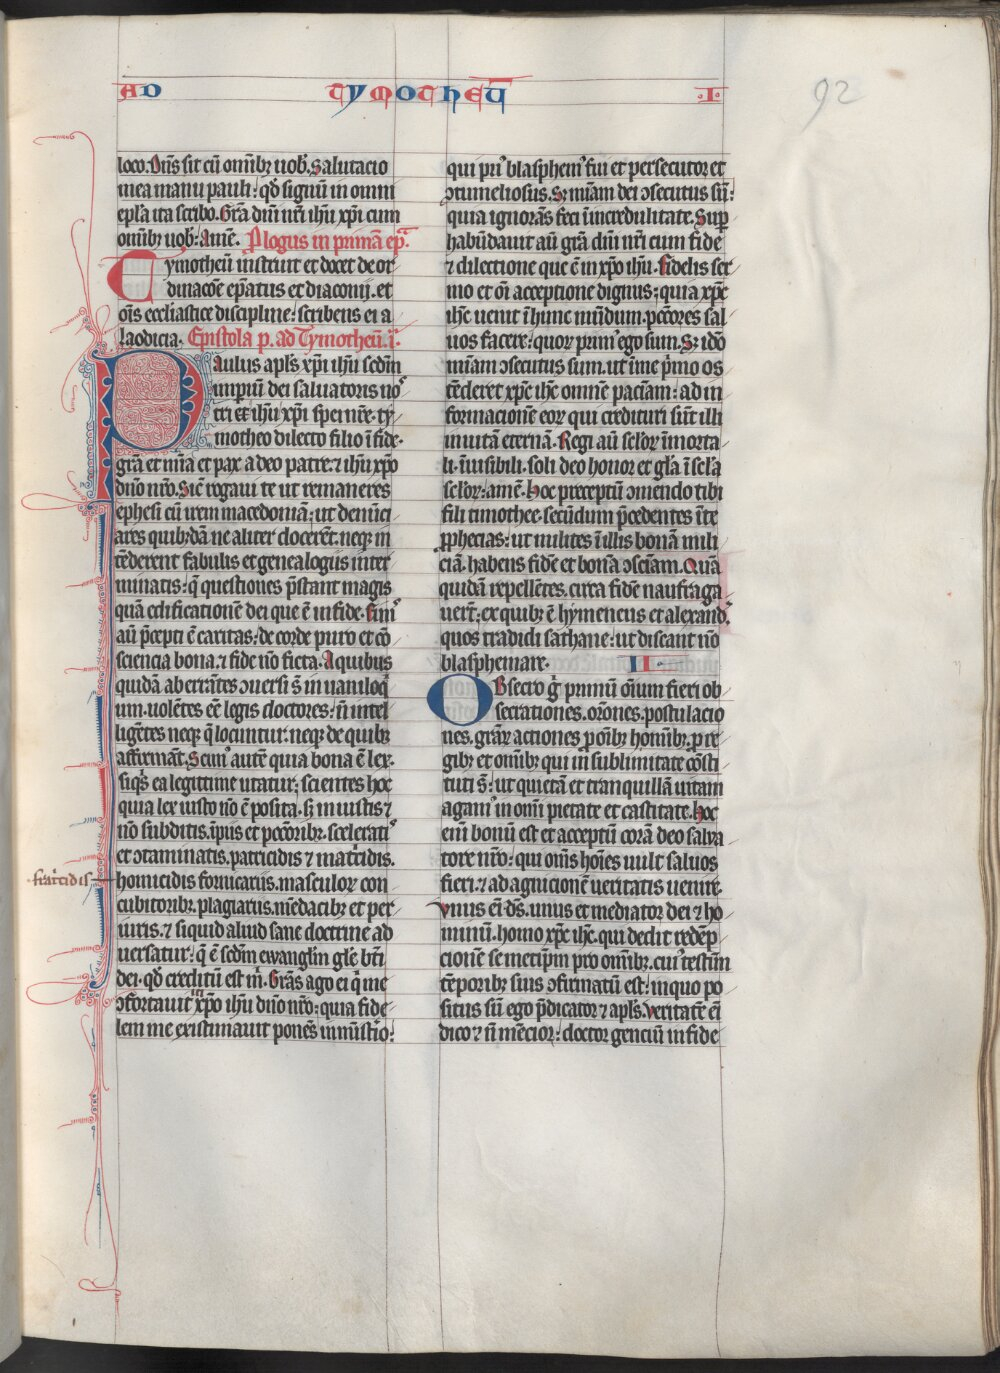 AD TYMOTHEŪ .I.
92
loco. Dn̄s sit cū om̄ibꝫ uob̄. Salutacio
mea manu pauli: qd̄ signū in omni
epl̄a ita scribo. Gr̄a dn̄i nr̄i ih̄u xp̄i cum
om̄ibꝫ uob̄: Amē. Plogus in primā ep̄.
Tymotheū instruit et docet de or
dinacōe ep̄atus et diaconij. et
oīs eccl̄iastice discipline: scribens ei a
laodicia. Epistola p. ad Tymotheū. i.
Paulus apl̄s xp̄i ih̄u sed̄m
impiū dei saluatoris no
tri et ih̄u xp̄i spei nr̄e. ty
motheo dilecto filio ī fide.
gr̄a et mīa et pax a deo patre. ⁊ ih̄u xp̄o
dn̄o nr̄o. Sic̄ rogaui te ut remaneres
ephesi cū irem macedoniā: ut denūci
ares quibꝫdā ne aliter docerēt. neqꝫ in
tēderent fabulis et genealogiis inter
minatis: q̄ questiones p̄stant magis
quā edificationē dei que ē in fide. Fini᷒
aū p̄cepti ē caritas: de corde puro et cō
sciencia bona. ⁊ fide nō ficta. A quibus
quidā aberrātes ɔuersi s̄ in uaniloq̄
um. uolētes eē legis doctores: n̄ intel
ligētes neqꝫ q̄ locuntur. neqꝫ de quibꝫ
affirmāt. Scim᷒ autē quia bona ē lex.
siq̄s ea legittime utatur: scientes hoc
quia lex iusto nō ē posita. sꝫ iniustis ⁊
nō subditis. īpiis et pcc̄oribꝫ. scelerati᷒
et ɔtaminatis. patricidis ⁊ mat͛cidis.
frat͛cidis
homicidis fornicariis. masculoꝝ con
cubitoribꝫ. plagiariis. mēdacibꝫ et per
iuris. ⁊ siquid aliud sane doctrine ad
uersatur: q̄ ē sed̄m ewangl̄m gl̄e bt̄i
dei. qd̄ creditū est m̄. Gr̄as ago ei q̄ me
ɔfortauit ī xp̄o ih̄u dn̄o nr̄o: quia fide
lem me existimauit ponēs in mīst̄io:
qui pri᷒ blasphem᷒ fui et persecutor et
ɔtumeliosus. Sꝫ mīam dei ɔsecutus sū:
quia ignorās feci ī incredulitate. Sup̄
habūdauit aū gr̄a dn̄i nr̄i cum fide
⁊ dilectione que ē in xp̄o ih̄u. Fidelis ser
mo et oī acceptione dignus: quia xp̄c
ih̄c uenit ī hunc mūdum. pcc̄ores sal
uos facere: quoꝝ prim᷒ ego sum. Sꝫ ido
mīam ɔsecutus sum. ut ī me p̄mo os
tēderet xp̄c ih̄c omnē paciam: ad in
formacionē eoꝝ qui credituri sūt illi
in uitā eternā. Regi aū scl̄oꝝ īmorta
li. īuisibili. soli deo honor et gl̄a ī scl̄a
scl̄oꝝ: amē. Hoc preceptū ɔmendo tibi
fili timothee. secūdum p̄cedentes ī te
ꝓphecias: ut milites ī illis bonā mili
ciā. habens fidē et bonā ɔsciam. Quā
quidā repellētes. circa fidē naufraga
uert̄: ex quibꝫ ē hymeneus et alexand᷒.
quos tradidi sathane: ut discant nō
blasphemare. II.
Obsecro g͛ primū oīum fieri ob
secrationes. or̄ones. postulacio
nes. gr̄aꝝ actiones p om̄ibꝫ homībꝫ. p re
gibꝫ et om̄ibꝫ qui in sublimitate cōsti
tuti s̄: ut quietā et tranquillā uitam
agam᷒ in om̄i pietate et castitate. Hoc
enī bonū est et acceptū corā deo salua
tore nr̄o: qui om̄s hoīes uult saluos
fieri. ⁊ ad agnicionē ueritatis uenire.
Vnus eī ds̄. unus et mediator dei ⁊ ho
minū. homo xp̄c ih̄c. qui dedit redēp
cionē semetip̄m pro om̄ibꝫ. cui᷒ testīm
tēporibꝫ suis ɔfirmatū est: in quo po
situs sū ego p̄dicator ⁊ apl̄s. Veritatē eī
dico ⁊ n̄ mēcior: doctor genciū in fide